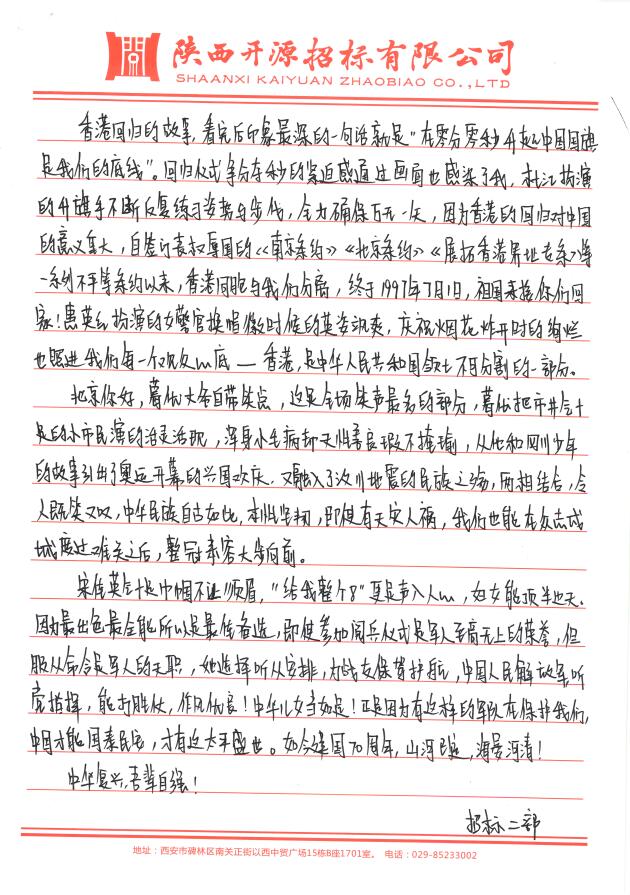 陕西开源招标有限公司
SHAANXI KAIYUAN ZHAOBIAO CO.,LTD
香港回归的故事,看完后印象最深的一句话就是"在零分零秒升起中国国旗
是我们的底线"。回归仪式争分夺秒的紧迫感通过画面也感染了我,杜江扮演
的升旗手不断反复练习姿势与步伐,全力确保万无一失,因为香港的回归对中国
的意义重大,自签订丧权辱国的《南京条约》《北京条约》《展拓香港界址专条》等
一系列不平等条约以来,香港同胞与我们分离,终于1997年7月1日,祖国来接你们回
家!惠英红扮演的女警官换帽徽时候的英姿飒爽,庆祝烟花炸开时的绚烂
也照进我们每一个观众心底——香港,是中华人民共和国领土不可分割的一部分。
北京你好,葛优大爷自带笑点,这是全场笑声最多的部分,葛优把市井气十
足的小市民演的活灵活现,浑身小毛病却天性善良瑕不掩瑜,从他和四川少年
的故事引出了奥运开幕的兴国欢庆,又融入了汶川地震的民族之殇,两相结合,令
人既笑又叹,中华民族自古如此,本性坚韧,即使有天灾人祸,我们也能在众志成
城度过难关之后,整冠束容大步向前。
宋佳英气十足巾帼不让须眉,"给我整个8"更是声入人心,妇女能顶半边天。
因为最出色最全能所以是最佳备选,即使参加阅兵仪式是军人至高无上的荣誉,但
服从命令是军人的天职,她选择听从安排,为战友保驾护航,中国人民解放军,听
党指挥,能打胜仗,作风优良!中华儿女当如是!正是因为有这样的军队在保护我们,
中国才能国泰民安,才有这太平盛世。如今建国70周年,山河已定,海晏河清!
中华复兴,吾辈自强!
招标二部
地址:西安市碑林区南关正街以西中贸广场15栋B座1701室。 电话:029-85233002